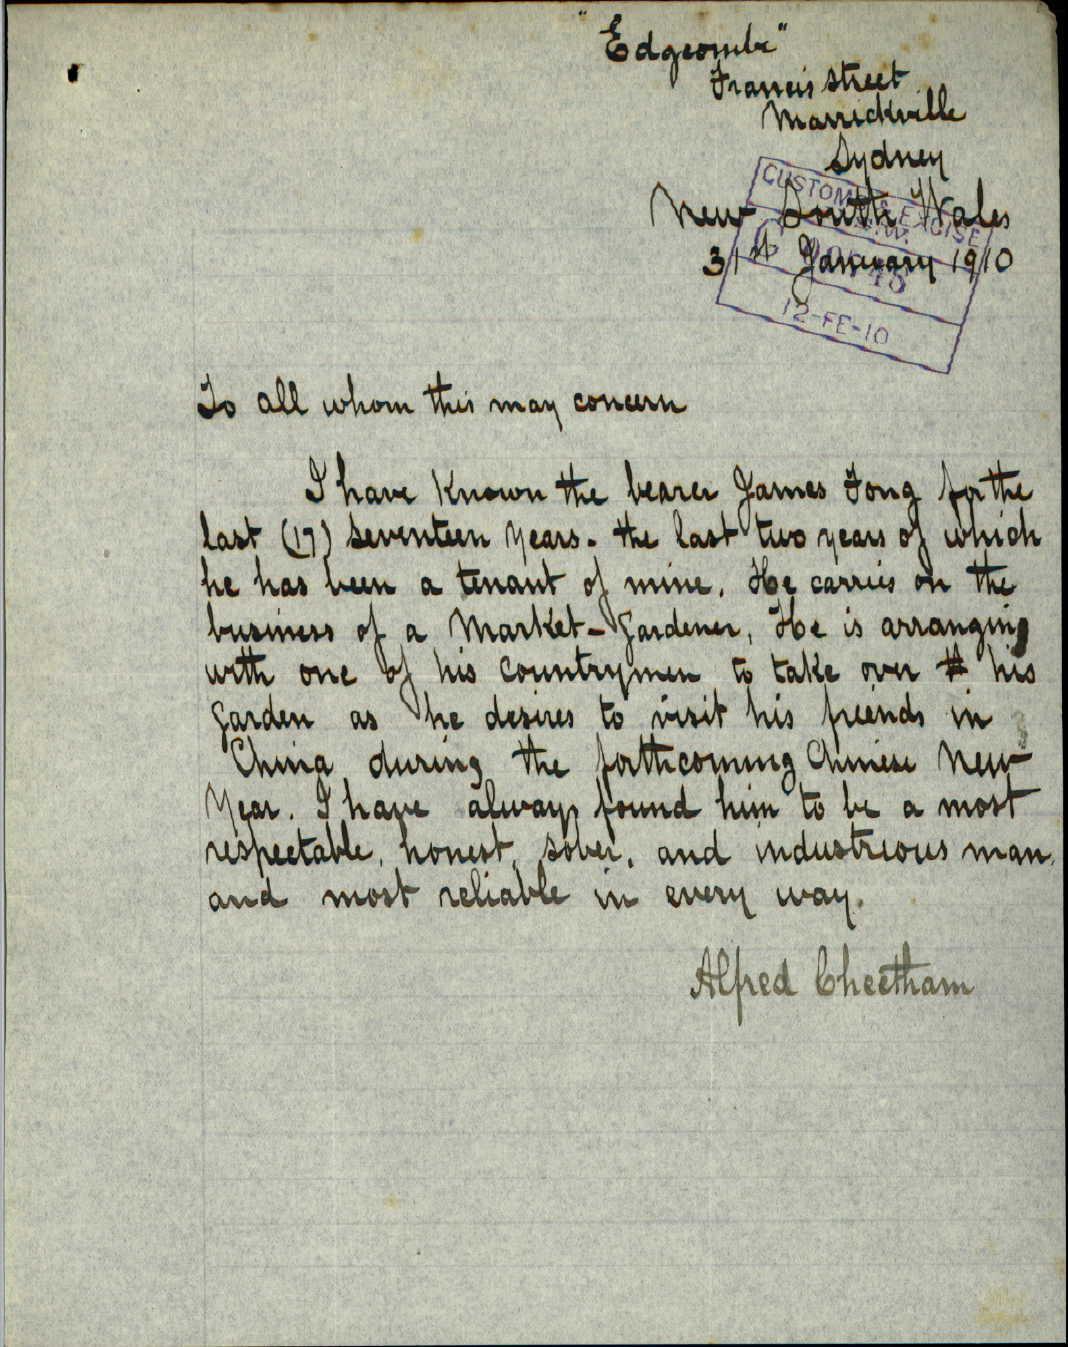 "Edgcombe"
Francis street
Marrickville
Sydney
New South Wales
31st January 1910
CUSTOMS & EXCISE
N.S.W.
12-FE-10
To all whom this may concern
I have Known the bearer James Fong for the
last (17) seventeen years. the last two years of which
he has been a tenant of mine. He carries on the
business of a Market-Gardener, He is arranging
with one of his Countrymen to take over his
Garden as he desires to visit his freinds in
China during the forthcoming Chinese New
Year. I have always found him to be a most
respectable, honest, sober, and industrious man,
and most reliable in every way.
Alfred Cheetham